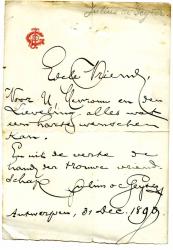 Julius de Geyter
Edele Vriend,
Voor U, Mevrouw en den
Lieveling, alles wat
een hart wenschen
kan.
En uit de verte de
hand der trouwe vriend-
schap
Julius de Geyter
Antwerpen, 31 Dec. 189